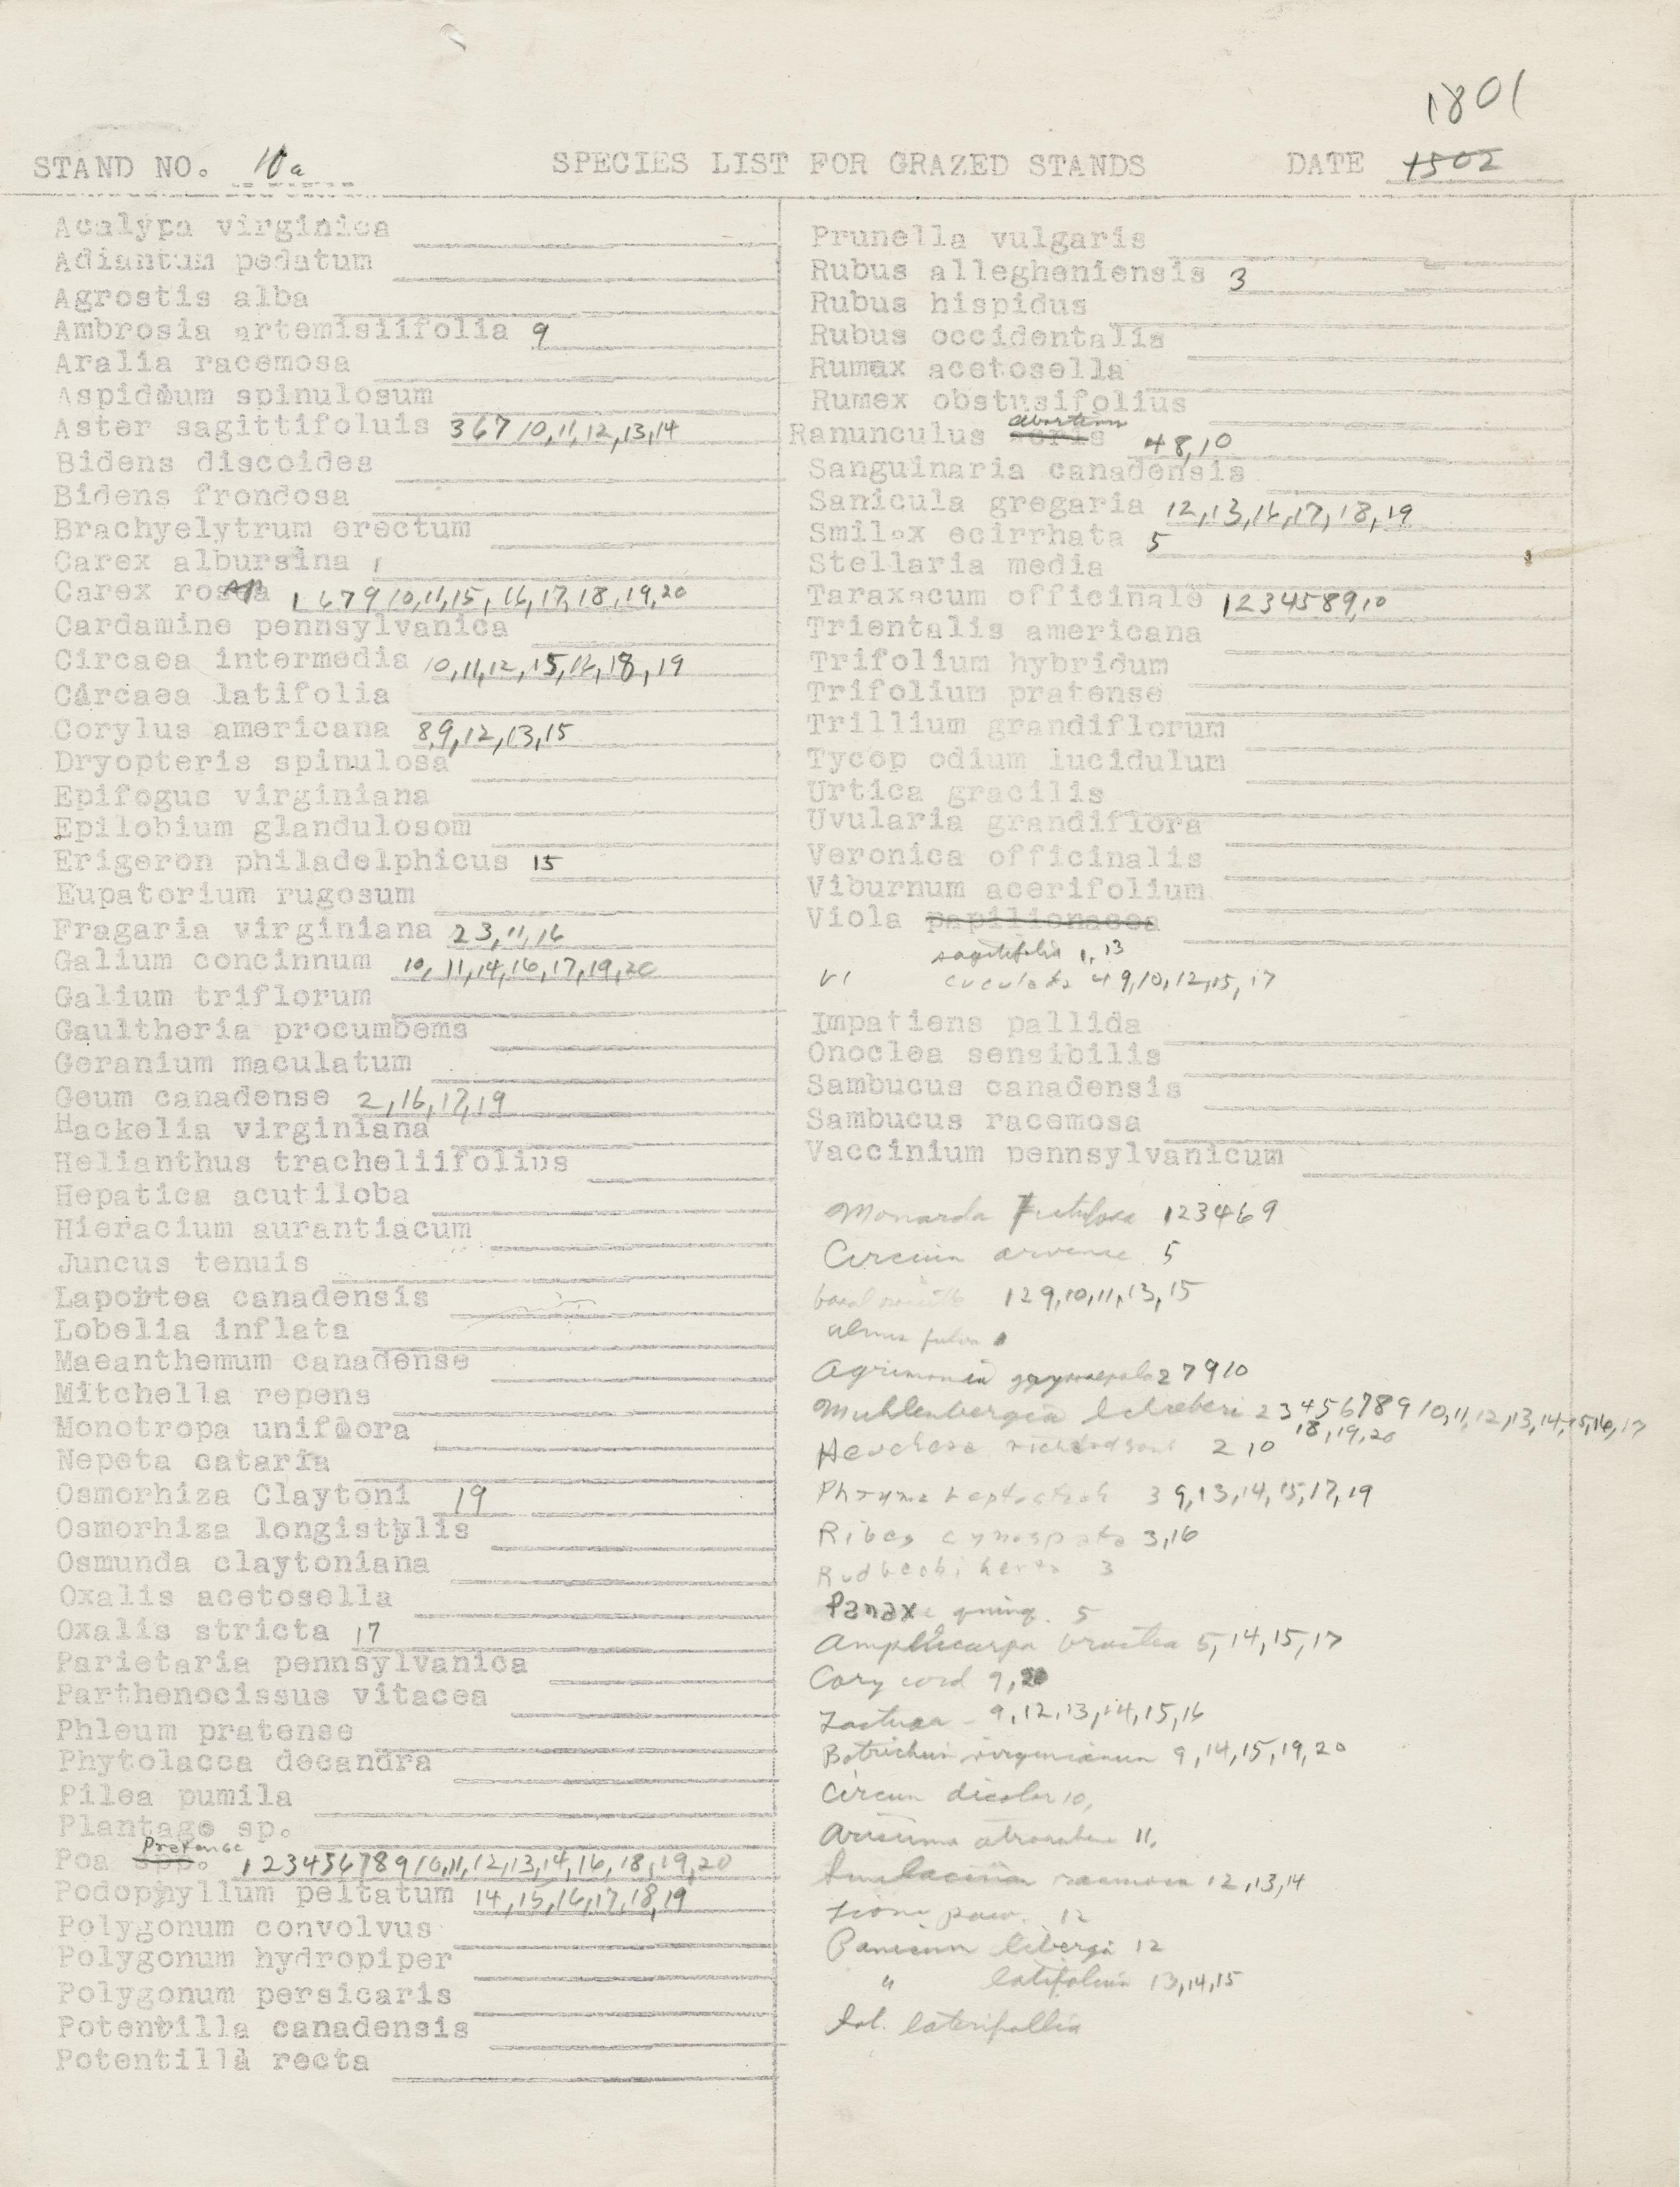 1801
STAND NO. 10a SPECIES LIST FOR GRAZED STANDS DATE 1502
Acalypa virginica
Adiantum pedatum
Agrostis alba
Ambrosia artemisiifolia 9
Aralia racemosa
Aspidium spinulosum
Aster sagittifoluis 3 6 7 10, 11, 12, 13, 14
Bidens discoides
Bidens frondosa
Brachyelytrum erectum
Carex albursina 1
Carex rosea 1 6 7 9 10, 11, 15, 16, 17, 18, 19, 20
Cardamine pennsylvanica
Circaea intermedia 10, 11, 12, 15, 16, 18, 19
Circaea latifolia
Corylus americana 8 9, 12, 13, 15
Dryopteris spinulosa
Epifogus virginiana
Epilobium glandulosom
Erigeron philadelphicus 15
Eupatorium rugosum
Fragaria virginiana 2 3, 11, 16
Galium concinnum 10, 11, 14, 16, 17, 19, 20
Galium triflorum
Gaultheria procumbems
Geranium maculatum
Geum canadense 2, 16, 17, 19
Hackelia virginiana
Helianthus tracheliifolius
Hepatica acutiloba
Hieracium aurantiacum
Juncus tenuis
Laportea canadensis
Lobelia inflata
Maeanthemum canadense
Mitchella repens
Monotropa uniflora
Nepeta cataria
Osmorhiza Claytoni 19
Osmorhiza longistylis
Osmunda claytoniana
Oxalis acetosella
Oxalis stricta 17
Parietaria pennsylvanica
Parthenocissus vitacea
Phleum pratense
Phytolacca decandra
Pilea pumila
Plantago sp.
Pratense
Poa spp. 1 2 3 4 5 6 7 8 9 10, 11, 12, 13, 14, 16, 18, 19, 20
Podophyllum peltatum 14, 15, 16, 17, 18, 19
Polygonum convolvus
Polygonum hydropiper
Polygonum persicaris
Potentilla canadensis
Potentilla recta
Prunella vulgaris
Rubus allegheniensis 3
Rubus hispidus
Rubus occidentalis
Rumax acetosella
Rumex obstusifolius
abortivus
Ranunculus acris 4 8, 10
Sanguinaria canadensis
Sanicula gregaria 12, 13, 16, 17, 18, 19
Smilax ecirrhata 5
Stellaria media
Taraxacum officinale 1 2 3 4 5 8 9, 10
Trientalis americana
Trifolium hybridum
Trifolium pratense
Trillium grandiflorum
Tycop odium lucidulum
Urtica gracilis
Uvularia grandiflora
Veronica officinalis
Viburnum acerifolium
Viola papilionacea
sagittifolia 1, 13
VI cuculata 4 9, 10, 12, 15, 17
Impatiens pallida
Onoclea sensibilis
Sambucus canadensis
Sambucus racemosa
Vaccinium pennsylvanicum
Monarda fistulosa 1 2 3 4 6 9
Circium arvense 5
1 2 9, 10, 11, 13, 15
Ulmus fulva
Agrimonia gryposepala 2 7 9 10
Muhlenbergia Schreberi 2 3 4 5 6 7 8 9 10, 11, 12, 13, 14, 15, 16, 17
18, 19, 20
Heuchera richardsoni 2, 10
Phryma leptostach 3 9, 13, 14, 15, 17, 19
Ribes cynosbati 3, 16
Rudbecki herta 3
Panax quinq. 5
Amphicarpa bractea 5, 14, 15, 17
Cary cord 9, 20
Lactuca - 9, 12, 13, 14, 15, 16
Botrichium virginianum 9, 14, 15, 19, 20
Circum discolor 10,
Arisema 11,
Smilacina racemosa 12, 13, 14
12
Panicum libergi 12
" latifolium 13, 14, 15
Sol. laterifollia